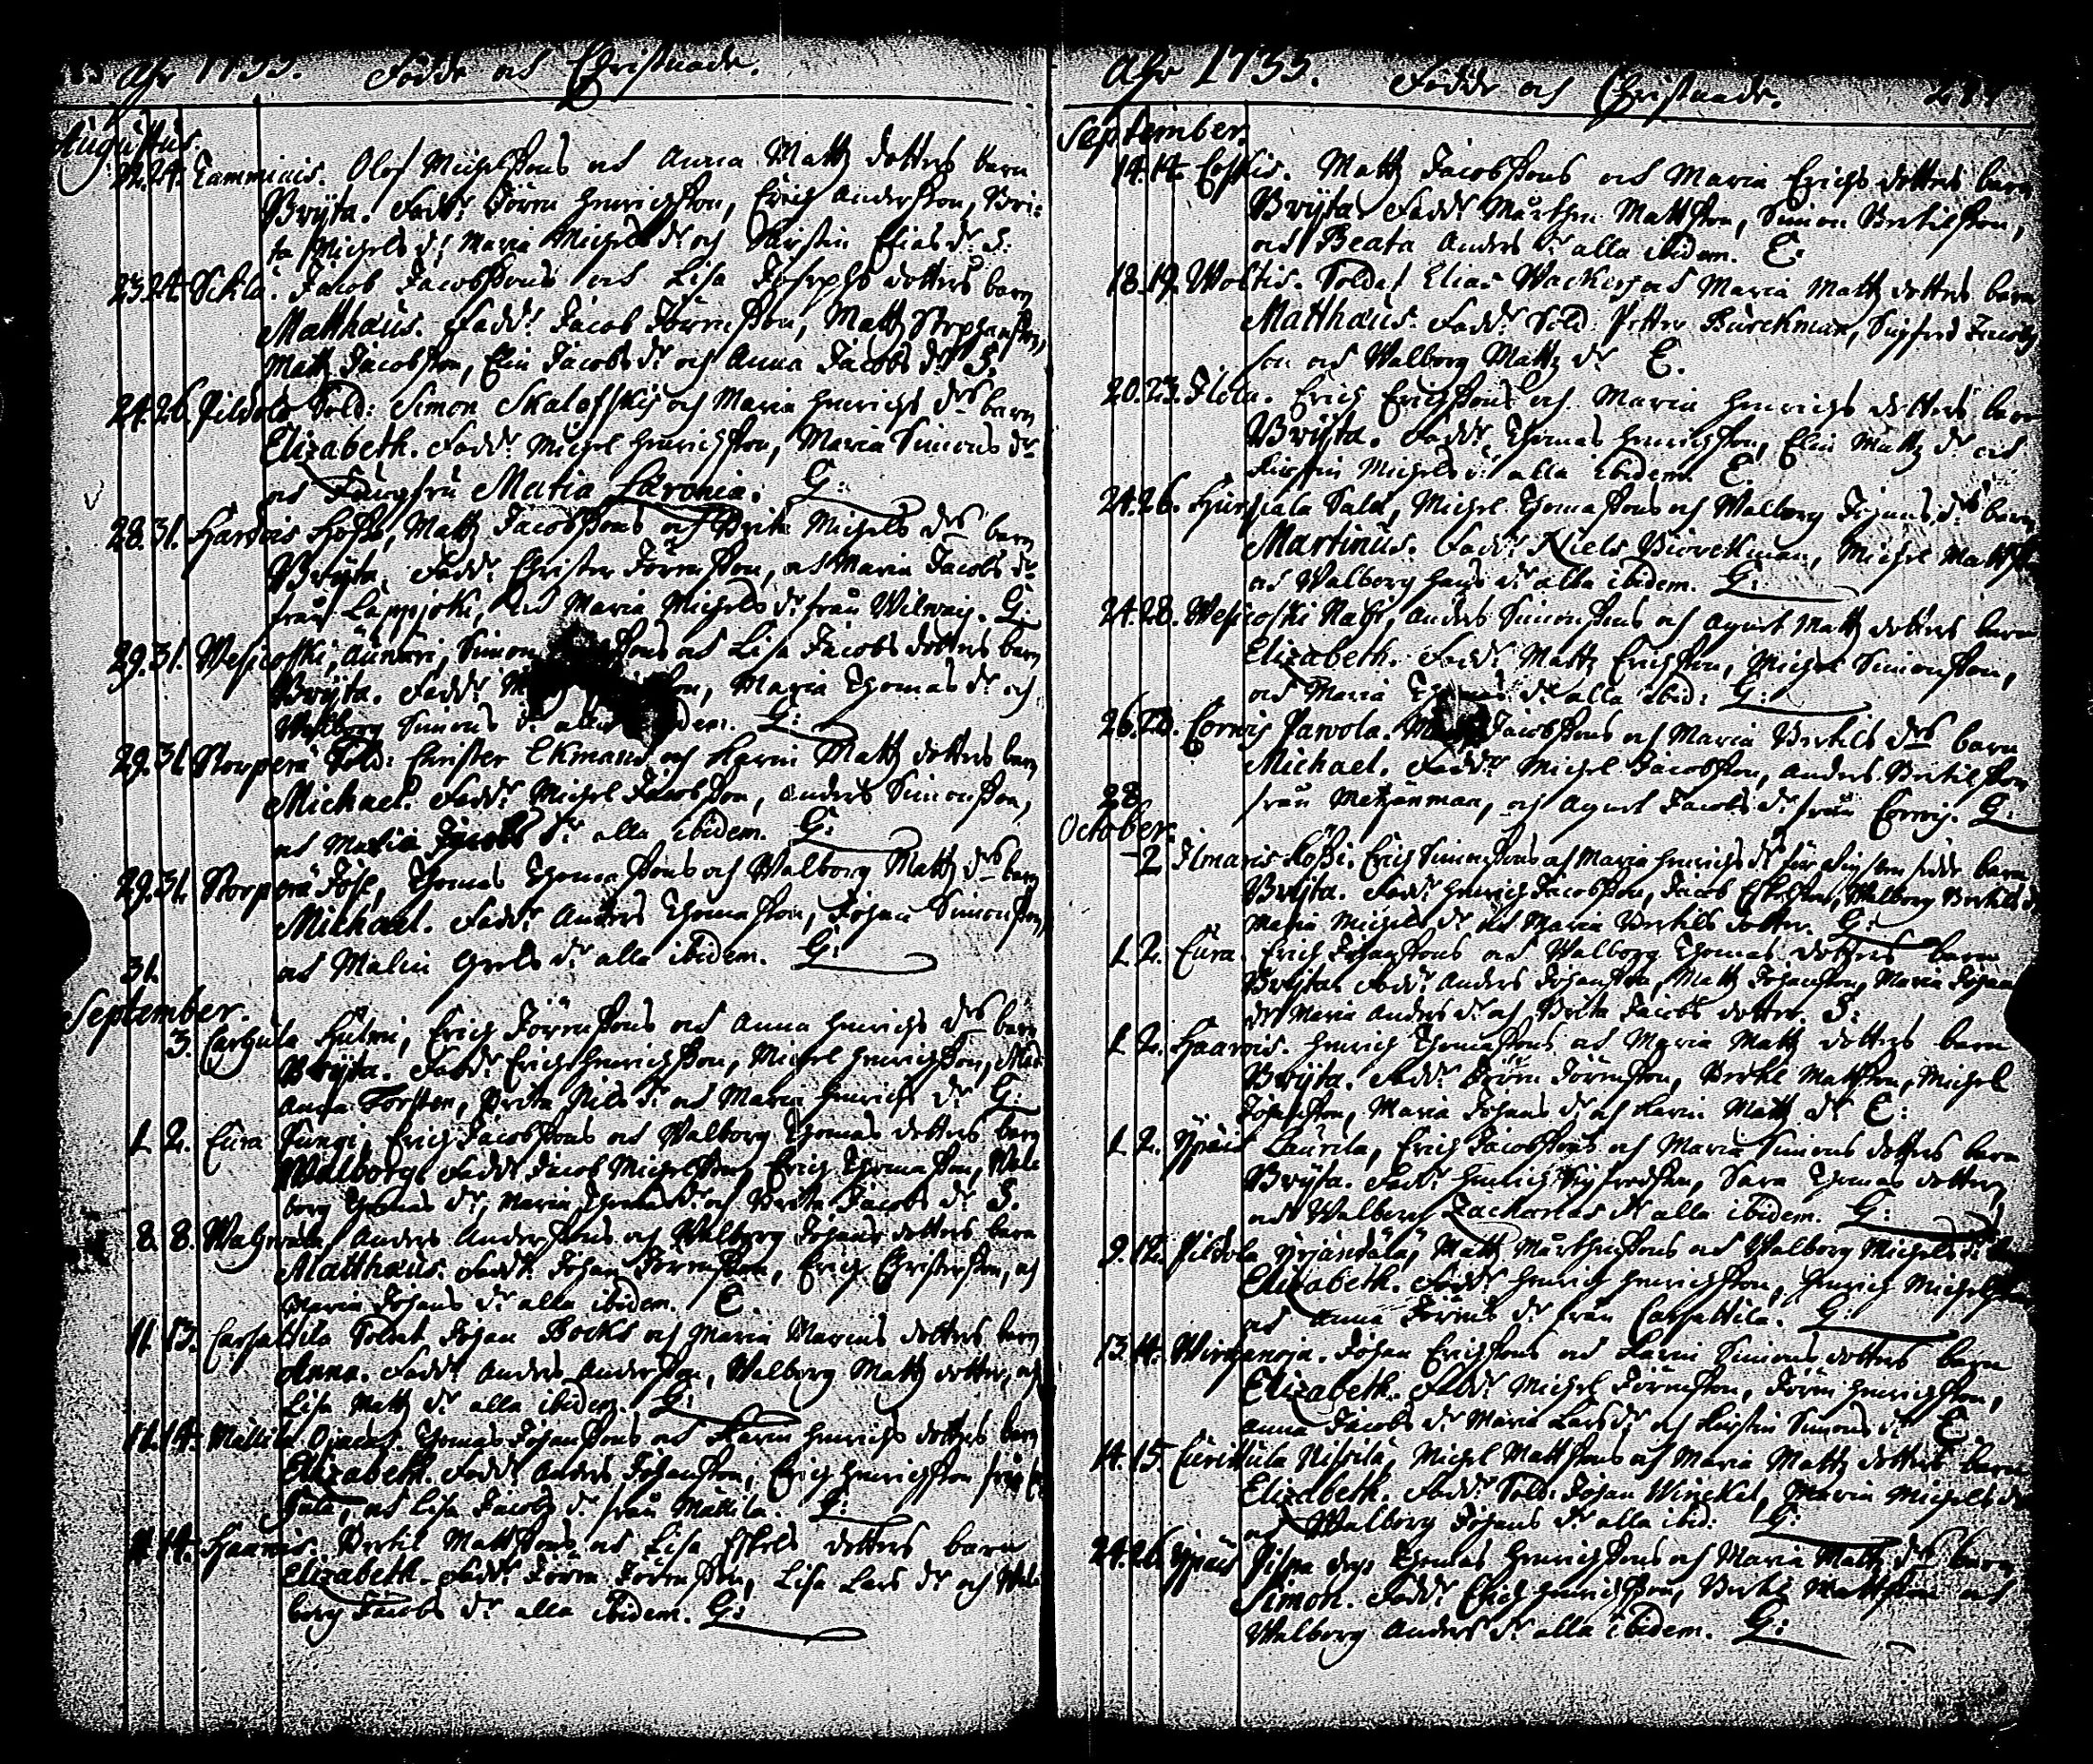 Åhr 1733. Födde och Christnade.
Augustus.
22. 24. Tammicis. Olof Michelssons och Anna Mattz dotters barn
Bryta. Fadd: Jören Henrichsson, Erich Andersson, Bri:
ta Michels dr, Maria Michels dr och Kirstin Elias dr S:
23. 24. Sickla. Jacob Jacobssons och Lisa Josephs dotters barn
Matthæus. Fadd: Jacob Jörensson, Mattz Stephansson,
Mattz Jacobsson, Elin Jacobs dr och Anna Jacobs dr S.
24. 26. Pildola Sold: Simon Skalofskij och Maria Henrichs drs barn
Elizabeth. Fadd: Michel Henrichsson, Maria Simons dr
och Jungfru Maria Laronia. G:
28. 31. Mattz Jacobssons och Brita Michels drs barn
Bryta. Fadd: Christer Jörensson, och Maria Jacobs dr
från Lappjoki, och Maria Michels dr från G:
29. 31. Wesicoski, Aunuri, Simon och Lisa Jacobs dotters barn
Bryta. Fadd: Maria Thomas dr och
Walborg Simons dr alla ibidem. G:
29. 31. Norperä Sold: Christer Ekmans och Karin Mattz dotters barn
Michael. Fadd: Michel Jacobsson, Anders Simonsson,
och Maria Jacobs dr alla ibidem. G:
29. 31. Norperä Jose, Thomas Thomassons och Walborg Mattz drs barn
Michael. Fadd: Anders Thomasson, Johan Simonsson,
31. och Malin Grels dr alla ibidem. G:
September.
3. Carhula Erich Jörenssons och Anna Henrichs drs barn
Bryta. Fadd: Erich Henrichsson, Michel Henrichsson,
Anna Forsten, Brita Nils dr och Maria Henrichs dr G:
1. 2. Eura Erich Jacobssons och Walborg Thomas dotters barn
Walborg. Fadd: Jacob Michelsson, Erich Thomasson, Wal:
borg Thomas dr, Maria Thomas dr och Brita Jacobs dr S.
8. 8. Anders Anderssons och Walborg Johans dotters barn
Matthæus. Fadd: Johan Jörensson, Erich Christersson, och
Maria Johans dr alla ibidem. E.
11. 13. Carhattila Soldat Johan Bocks och Maria dotters barn
Anna. Fadd: Anders Andersson, Walborg Mattz dotter, och
Lisa Mattz dr alla ibidem. G:
11. 14. Mattila Thomas Johanssons och Karin Henrichs dotters barn
Elizabeth. Fadd: Anders Johansson, Erich Henrichsson från
och Lisa Jacobs dr från Mattila. G:
11. 14. Bertil Mattssons och Lisa Eskels dotters barn
Elizabeth. Fadd: Jören Jörensson, Lisa Lars dr och Wal:
borg Jacobs dr alla ibidem. G:
Åhr 1733. Födde och Christnade.
September.
14. 14. Mattz Jacobssons och Maria Erichs dotters barn
Bryta. Fadd: Mårthen Mattsson, Simon Bertilsson,
och Beata Anders dr alla ibidem. E.
18. 19. Woltis. Soldat Elias Wackers och Maria Mattz dotters barn
Matthæus. Fadd: Sold: Petter Burckman, Sigfred Jacobs
son och Walborg Mattz dr E.
20. 23. Erich Erichssons och Maria Henrichs dotters barn
Bryta. Fadd: Thomas Henrichsson, Elin Mattz dr och
Kirstin Michels dr alla ibidem. E
24. 26. Michel Thomassons och Walborg Johans drs barn
Martinus. Fadd: Niels Biörckman, Michel Mattsson
och Walborg Hans dr alla ibidem. G:
24. 28. Wesicoski Anders Simonssons och Agnet Mattz dotters barn
Elizabeth. Fadd: Mattz Erichsson, Michel Simonsson,
och Maria dr alla ibid: G:
26. 28. Corvois Parvola. Jacobssons och Maria Bertils drs barn
Michael. Fadd: Michel Jacobsson, Anders Bertilsson
28. från Metzänman, och Agnet Jacobs dr från G:
October.
2. Ilmaris Erich Simonssons och Maria Henrichs dr barn
Bryta. Fadd: Henrich Jacobsson, Jacob Eskelsson, Walborg Bertils dr
Maria Michels dr och Maria Bertils dotter. G:
1. 2. Eura. Erich Johanssons och Walborg Thomas dotters barn
Bryta. Fadd: Anders Johansson, Mattz Johansson, Maria Johans
dr Maria Anders dr och Brita Jacobs dotter. S:
1. 2. Haarois. Henrich Thomassons och Maria Mattz dotters barn
Bryta. Fadd: Jören Jörensson, Bertil Mattsson, Michel
Johansson, Maria Johans dr och Karin Mattz dr E:
1. 2. Ypäis Laurila, Erich Jacobssons och Maria Simons dotters barn
Bryta. Fadd: Henrich Sigfredsson, Sara Thomas dotter,
och Walborg Zacharias dr alla ibidem. G:
9. 12. Pildola Yrjändälä, Mattz Mårthenssons och Walborg Michels dr
Elizabeth. Fadd: Henrich Henrichsson, Henrich Michelsson
och Anna Jörens dr från Carhattila. G:
13. 14. Wirdanoja. Johan Erichssons och Karin Simons dotters barn
Elizabeth. Fadd: Michel Jörensson, Jören Henrichsson,
Anna Jacobs dr Maria Lars dr och Kirstin Simons dr E
14. 15. Michel Mattssons och Maria Mattz dotters barn
Elizabeth. Fadd: Sold: Johan Winckel, Maria Michels dr
och Walborg Johans dr alla ibid: G:
24. 26. Ypäis Thomas Henrichssons och Maria Mattz drs barn
Simon. Fadd: Erich Henrichsson, Bertil Mattsson och
Walborg Anders dr alla ibidem. G: